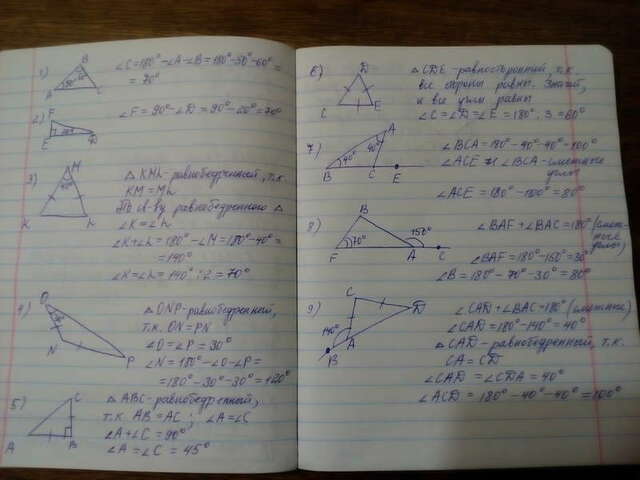 1)
B
A 30° C
∠C=180°-∠A-∠B=180°-30°-60°=
=90°
2)
F
E D
∠F=90°-∠D=90°-20°=70°
3)
M
40°
K L
△ KML-равнобедренный, т.к.
KM=ML
По св-ву равнобедренного △
∠K=∠L
∠K+∠L=180°-∠M=180°-40°=
=140°
∠K=∠L=140°:2=70°
4)
O
N P
△ ONP-равнобедренный,
т.к. ON=PN
∠O=∠P=30°
∠N=180°-∠O-∠P=
=180°-30°-30°=120°
5)
C
A B
△ ABC-равнобедренный,
т.к. AB=AC; ∠A=∠C
∠A+∠C=90°
∠A=∠C=45°
6)
D
C E
△ CDE-равносторонний, т.к.
все стороны равны. Значит,
и все углы равны
∠C=∠D=∠E=180°:3=60°
7)
A
40°
B 40° C E
∠BCA=180°-40°-40°=100°
∠ACE и ∠BCA-смежные
углы
∠ACE=180°-100°=80°
8)
B
F 70° A 150° C
∠BAF+∠BAC=180° (смеж-
ные
углы)
∠BAF=180°-150°=30°
∠B=180°-70°-30°=80°
9)
C D
140°
B A
∠CAD+∠BAC=180° (смежные)
∠CAD=180°-140°=40°
△ CAD-равнобедренный, т.к.
CA=CD
∠CAD=∠CDA=40°
∠ACD=180°-40°-40°=100°